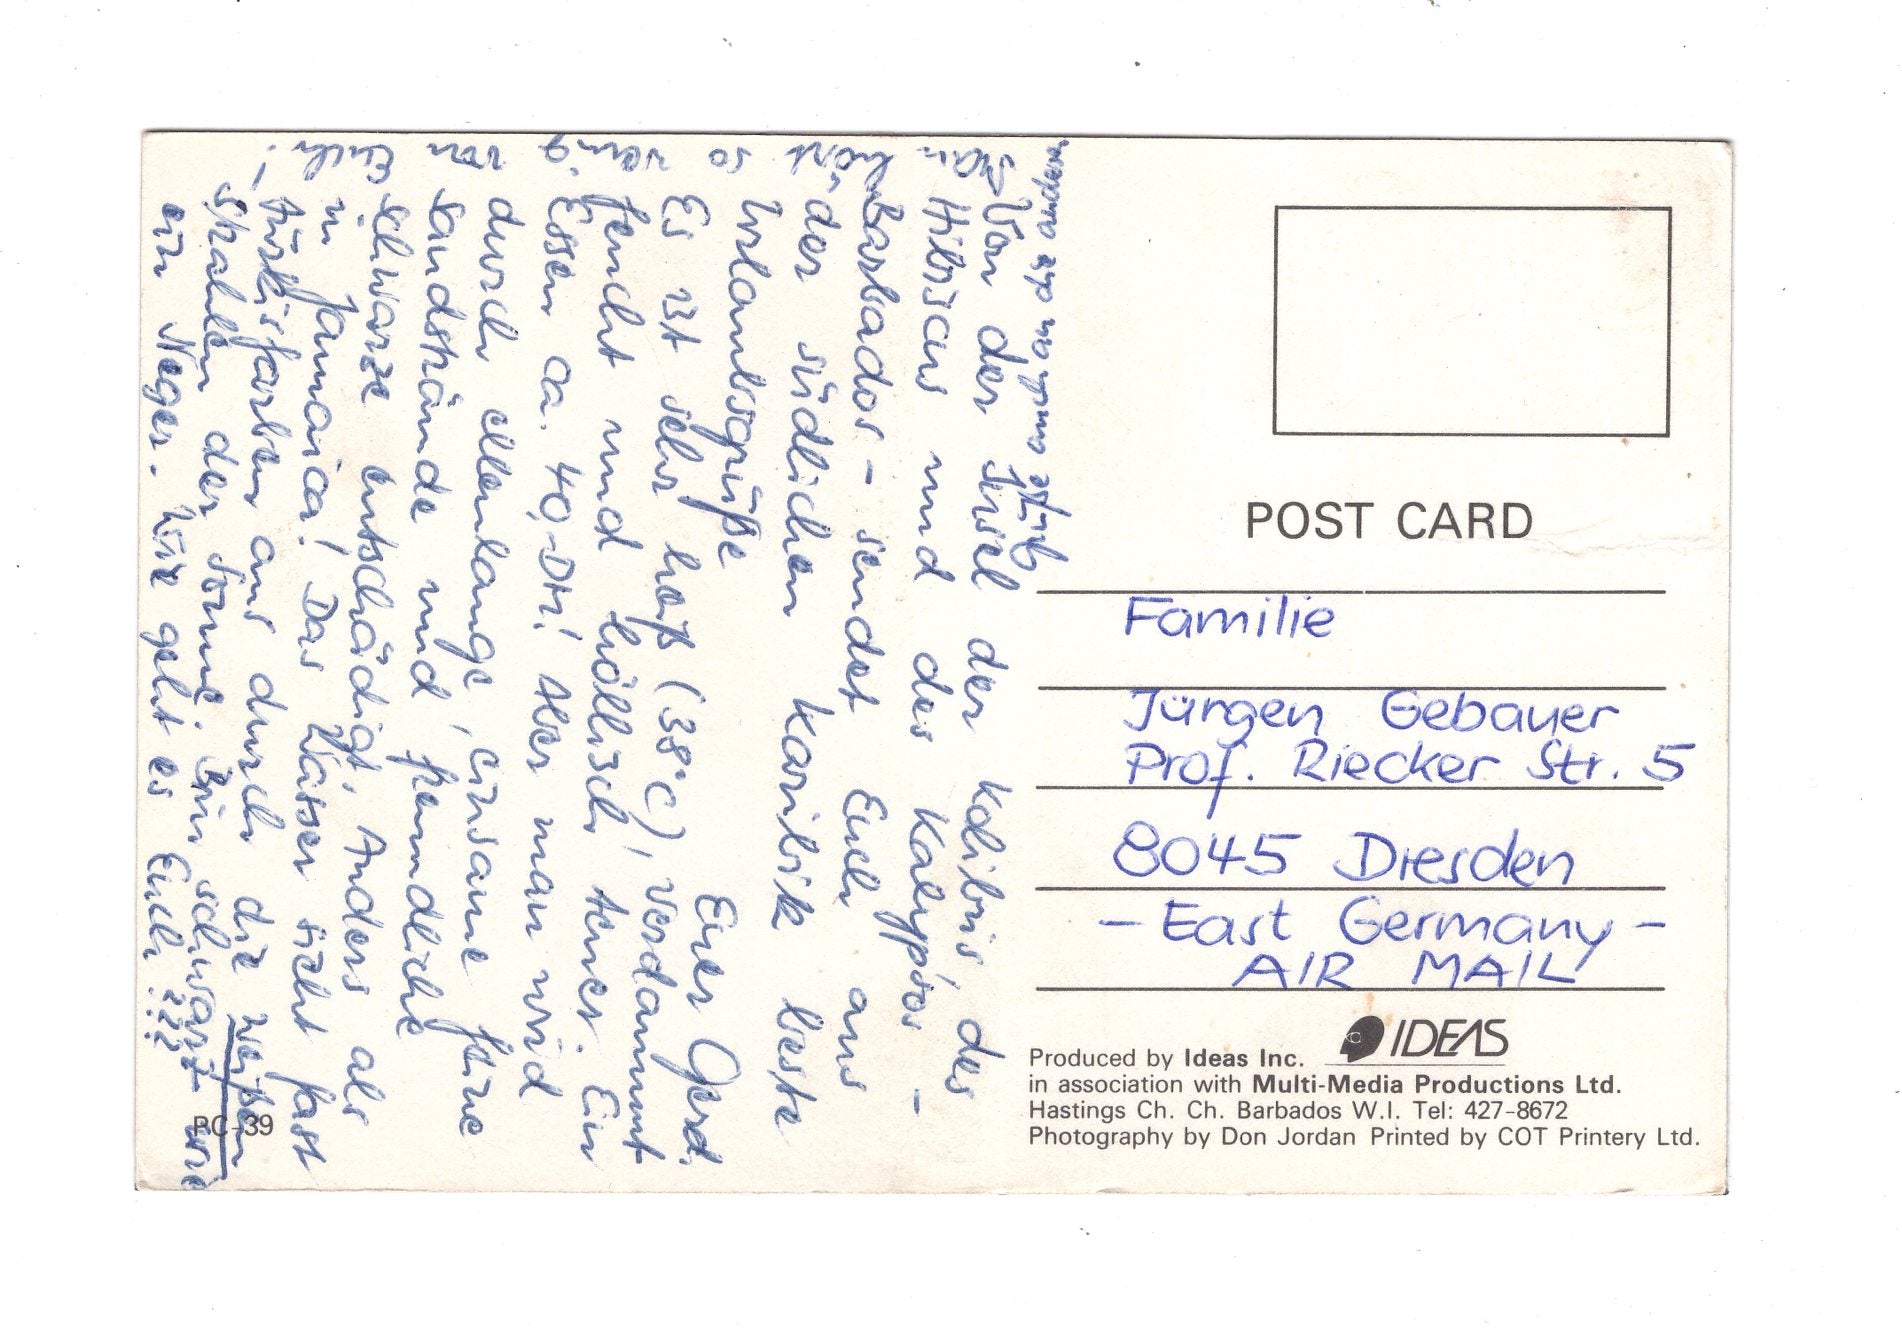 Von der Insel der Kolibris des
Hibiscus und des Kalypsos -
Barbados - sendet Euch aus
der südlichen Karibik beste
Urlaubsgrüße
Euer Gerd.
Es ist sehr heiß (38°C), verdammt
feucht und höllisch teuer. Ein
Essen ca. 40,-DM! Aber man wird
durch ellenlange, einsame feine
Sandstrände und freundliche
Schwarze entschädigt. Anders als
in Jammaica! Das Wasser sieht fast
türkisfarben aus durch die weißen
Strahlen der Sonne. Bin schwarz wie
ein Neger. Wie geht es Euch ???
Man hört so wenig von Euch!
Grüße und an die anderen
POST CARD
Familie
Jürgen Gebauer
Prof. Riecker Str. 5
8045 Dresden
- East Germany -
AIR MAIL
IDEAS
Produced by Ideas Inc.
in association with Multi-Media Productions Ltd.
Hastings Ch. Ch. Barbados W.I. Tel: 427-8672
Photography by Don Jordan Printed by COT Printery Ltd.
PC-39